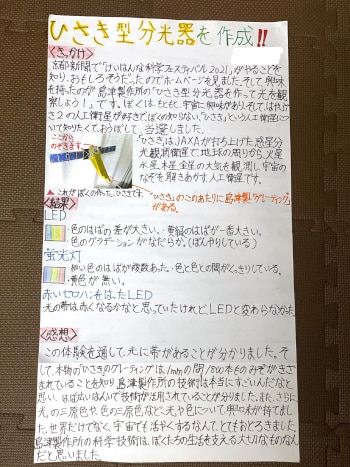 ひさき型分光器を作成!!
<きっかけ>
京都新聞で「けいはんな科学フェスティバル2021」がやることを
知り、おもしろそうだったのでホームページを見ました。そして興味
を持ったのが島津製作所の「ひさき型分光器を作って光を観
察しよう!」です。ぼくは、もともと、宇宙に興味があり、そしては
さ2の人工衛星が好きで、ぼくの知らない「ひさき」という人工衛星に
ついて知りたくておうぼして、当選しました。
ここから
のぞきます。
「ひさき」は、JAXAが打ち上げた惑星分
光観測衛星で、地球の周りから、火星
水星、木星、金星の大気を観測し、宇宙
のなぞを解きあかす人工衛星です。
▲これがぼくの作った、ひさきです。
「ひさき」のこのあたりに島津製「グレーティング」
がある。
<結果>
LED
・色のはばの差が大きい。・黄緑のはばが一番大きい。
・色のグラデーションがなだらか。(ぼんやりしている)
蛍光灯
・細い色のはばが複数あった。・色と色との間がくっきりしている。
・黄色が無い。
赤いセロハンをはったLED
・光の帯は赤くなるかなと思っていたけれど、LEDと変わらなかった
<感想>
この体験を通して、光に帯があることが分かりました。そ
して、本物のひさきのグレーティングは、1mmの間1800本ものみぞがきざ
まれていることを知り、島津製作所の技術は本当にすごいんだなと
思い、はば広いはんいで技術が活用されていることが分かりました。また、さらに
光の三原色や、色の三原色など、光や色について興味が持てまし
た。世界だけでなく、宇宙でも活やくするなんて、とてもおどろきました。
島津製作所の科学技術は、ぼくたちの生活を支える大切なものなん
だと思いました。